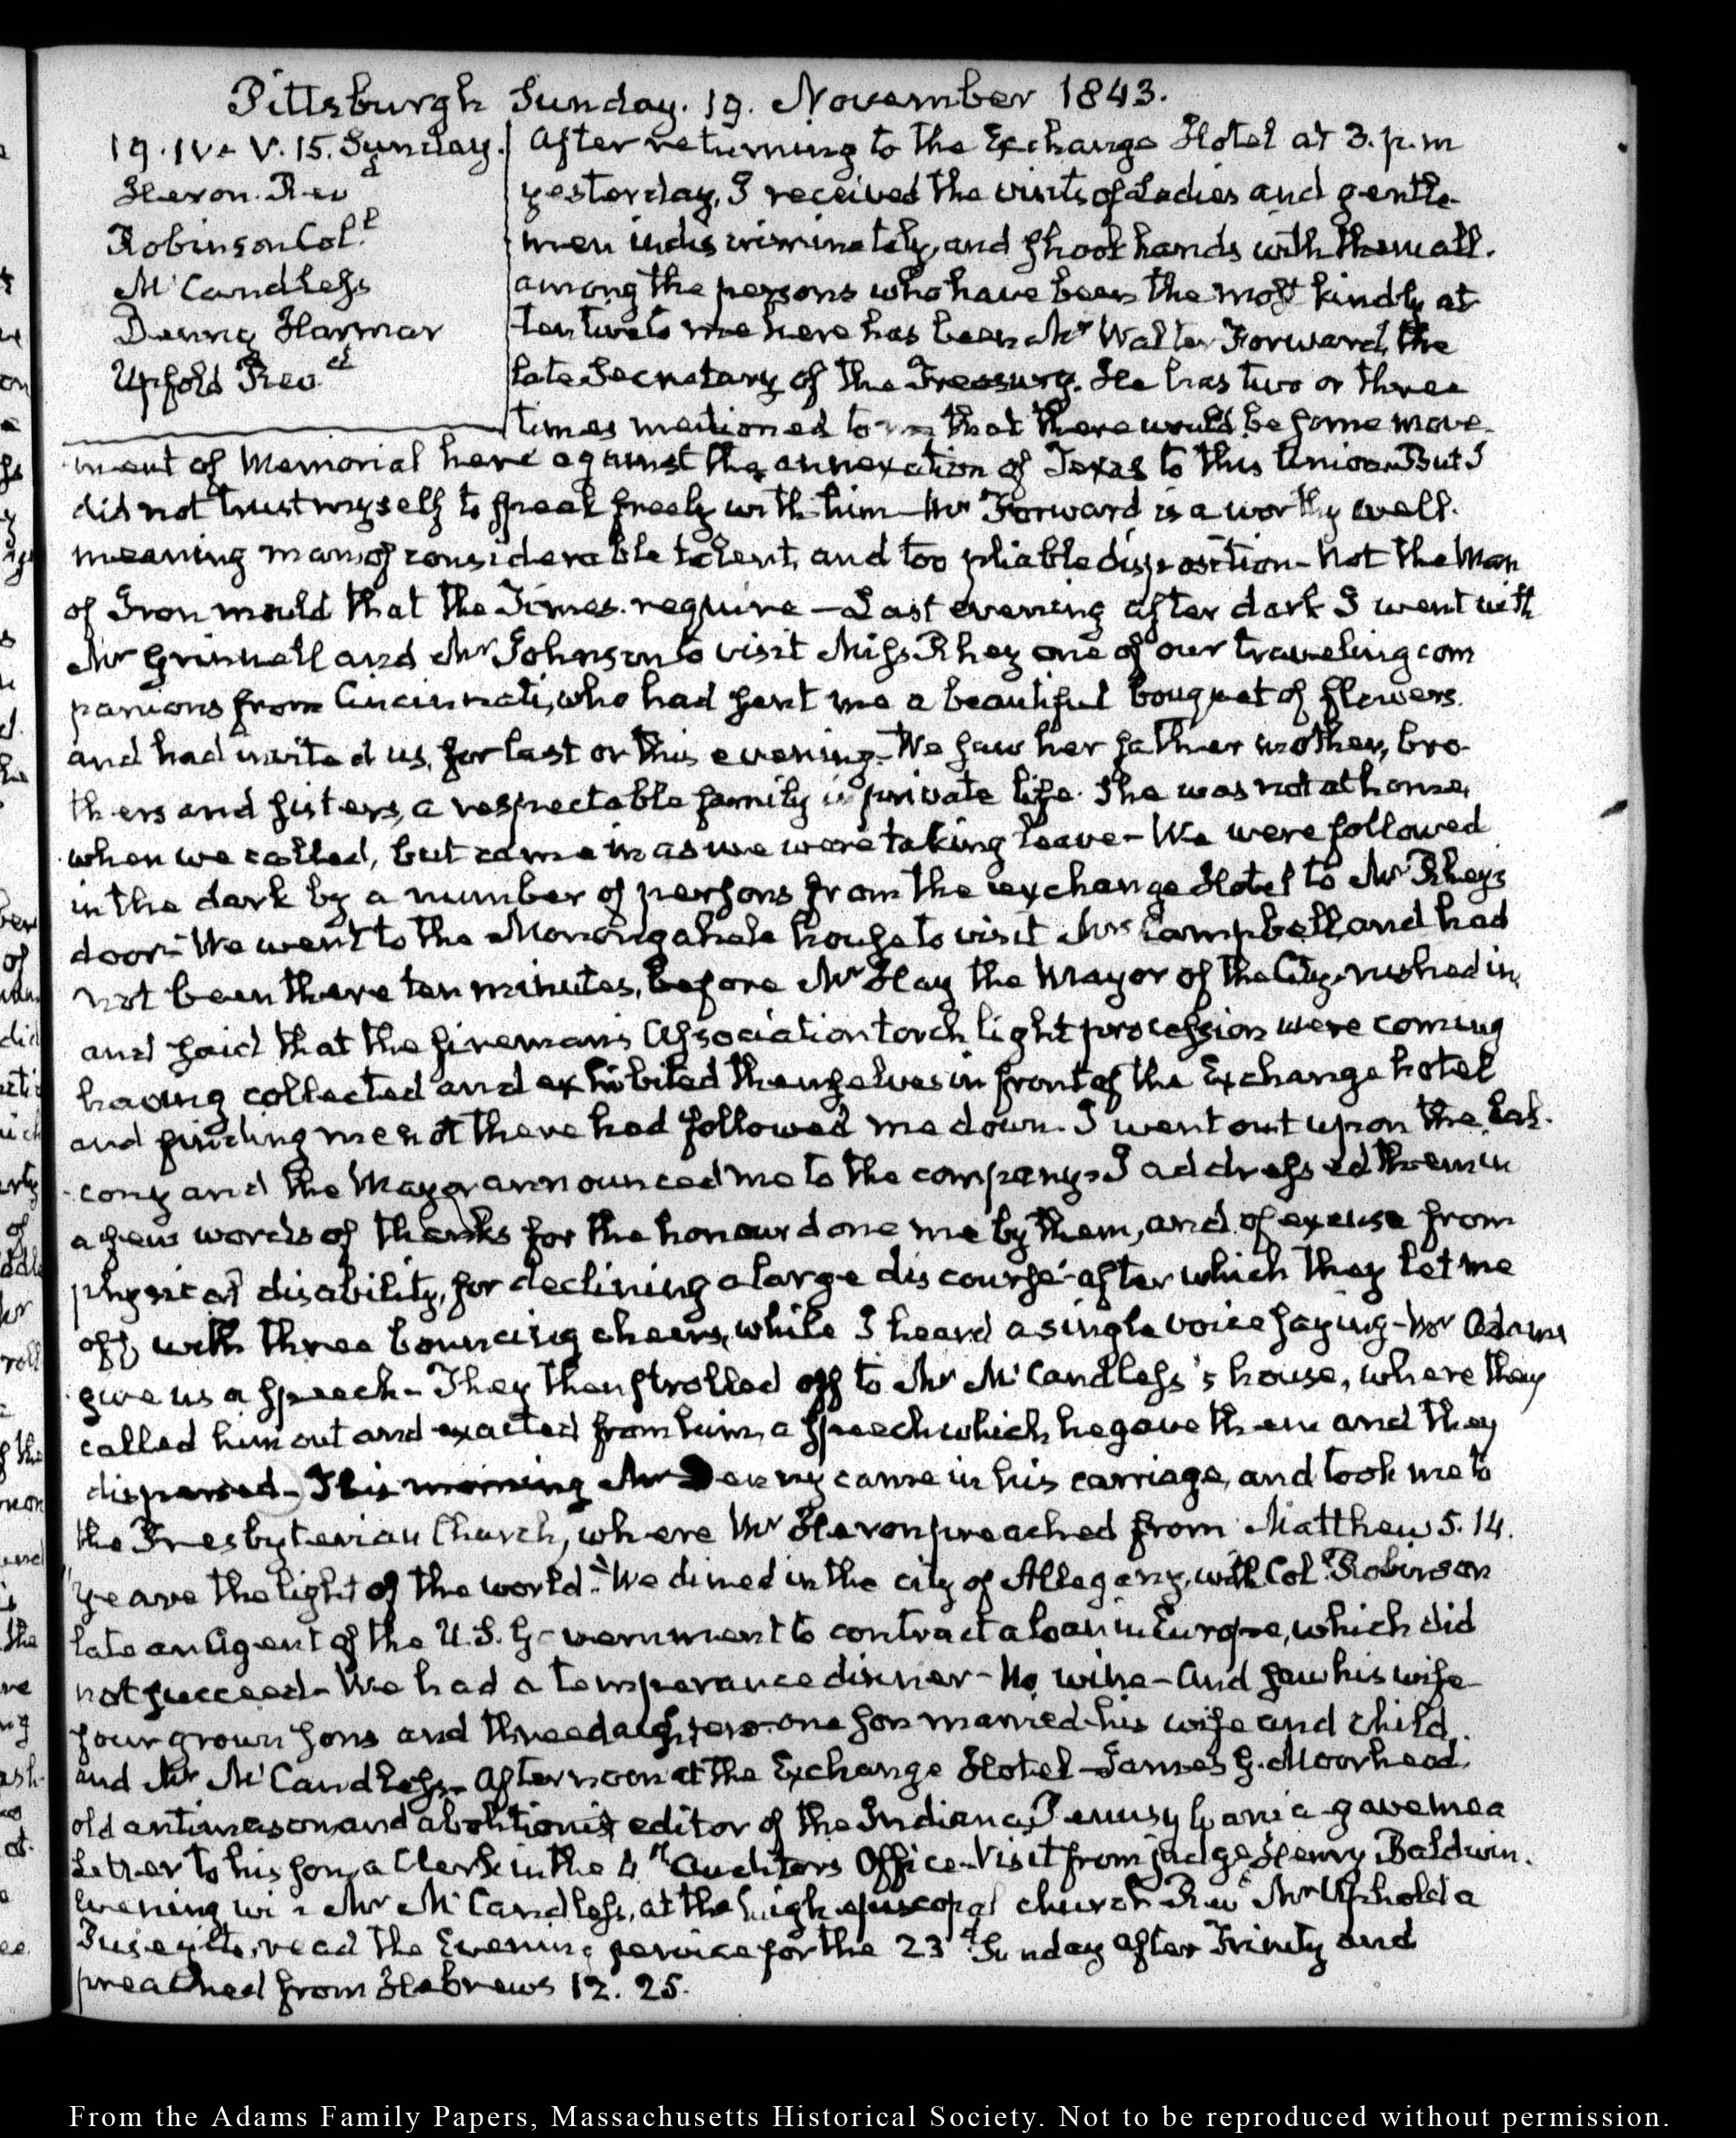 Pittsburgh Sunday. 19. November 1843.
19. IV. V. 15. Sunday.
Heron. Revd
Robinson Coll.
McCandless
Denny Harmar
Upfold Revd
After returning to the Exchange Hotel at 3. p.m
yesterday, I received the visits of Ladies and gentle-
men indiscriminately, and shook hands with them all.
among the persons who have been the most kindly at
tentive to me here has been Mr Walter Forward, the
late Secretary of the Treasury. He has two or three
times mentioned to me that there would be some move-
ment of Memorial here against the annexation of Texas to this Union. But I
did not trust myself to speak freely with him — Mr Forward is a worthy well-
meaning man, of considerable talent, and too pliable disposition - Not the Man
of Iron mould that the Times require — Last evening after dark I went with
Mr Grinnell and Mr Johnson to visit Miss Rhey one of our traveling com
panions from Cincinnati, who had sent me a beautiful bouquet of flowers.
and had invited us, for last or this evening - We saw her father mother, bro-
thers and sisters, a respectable family in private life. She was not at home,
when we called, but came in as we were taking leave - We were followed
in the dark by a number of persons from the exchange Hotel to Mr Rhey's
door - We went to the Monongahela house to visit Mrs Campbell, and had
not been there ten minutes, before Mr Hay the Mayor of the City, rushed in,
and said that the fireman's Association torch light procession were coming
having collected and exhibited themselves in front of the Exchange hotel
and finding me not there had followed me down. I went out upon the bal-
cony and the Mayor announced me to the company - I addressed them in
a few words of thanks for the honour done me by them, and of excuse from
physical disability, for declining a large discourse - after which they let me
off, with three bouncing cheers, while I heard a single voice saying - Mr Adams
give us a speech - They then strolled off to Mr McCandless's house, where they
called him out and exacted from him, a speech which he gave them and they
dispersed - This morning Mr Denny came in his carriage, and took me to
the Presbyterian Church, where Mr Heron preached from Matthew 5. 14.
"Ye are the light of the world." We dined in the city of Allegany, with Coll Robinson
late an Agent of the U.S. Government to contract a loan in Europe, which did
not succeed - We had a temperance dinner - No wine - And saw his wife
four grown sons and three daughters - one son married - his wife and child.
and Mr McCandless - Afternoon at the Exchange Hotel - James G. Moorhead,
old antimason, and abolitionist editor of the Indiana, Pennsylvania gave me a
Letter to his son, a Clerk in the 4th Auditors Office - Visit from judge Henry Baldwin.
Evening with Mr McCandless, at the high episcopal church Revd Mr Uphold a
Puseyite, read the Evening service for the 23d Sunday after Trinity and
preached from Hebrews 12. 25.
From the Adams Family Papers, Massachusetts Historical Society. Not to be reproduced without permission.